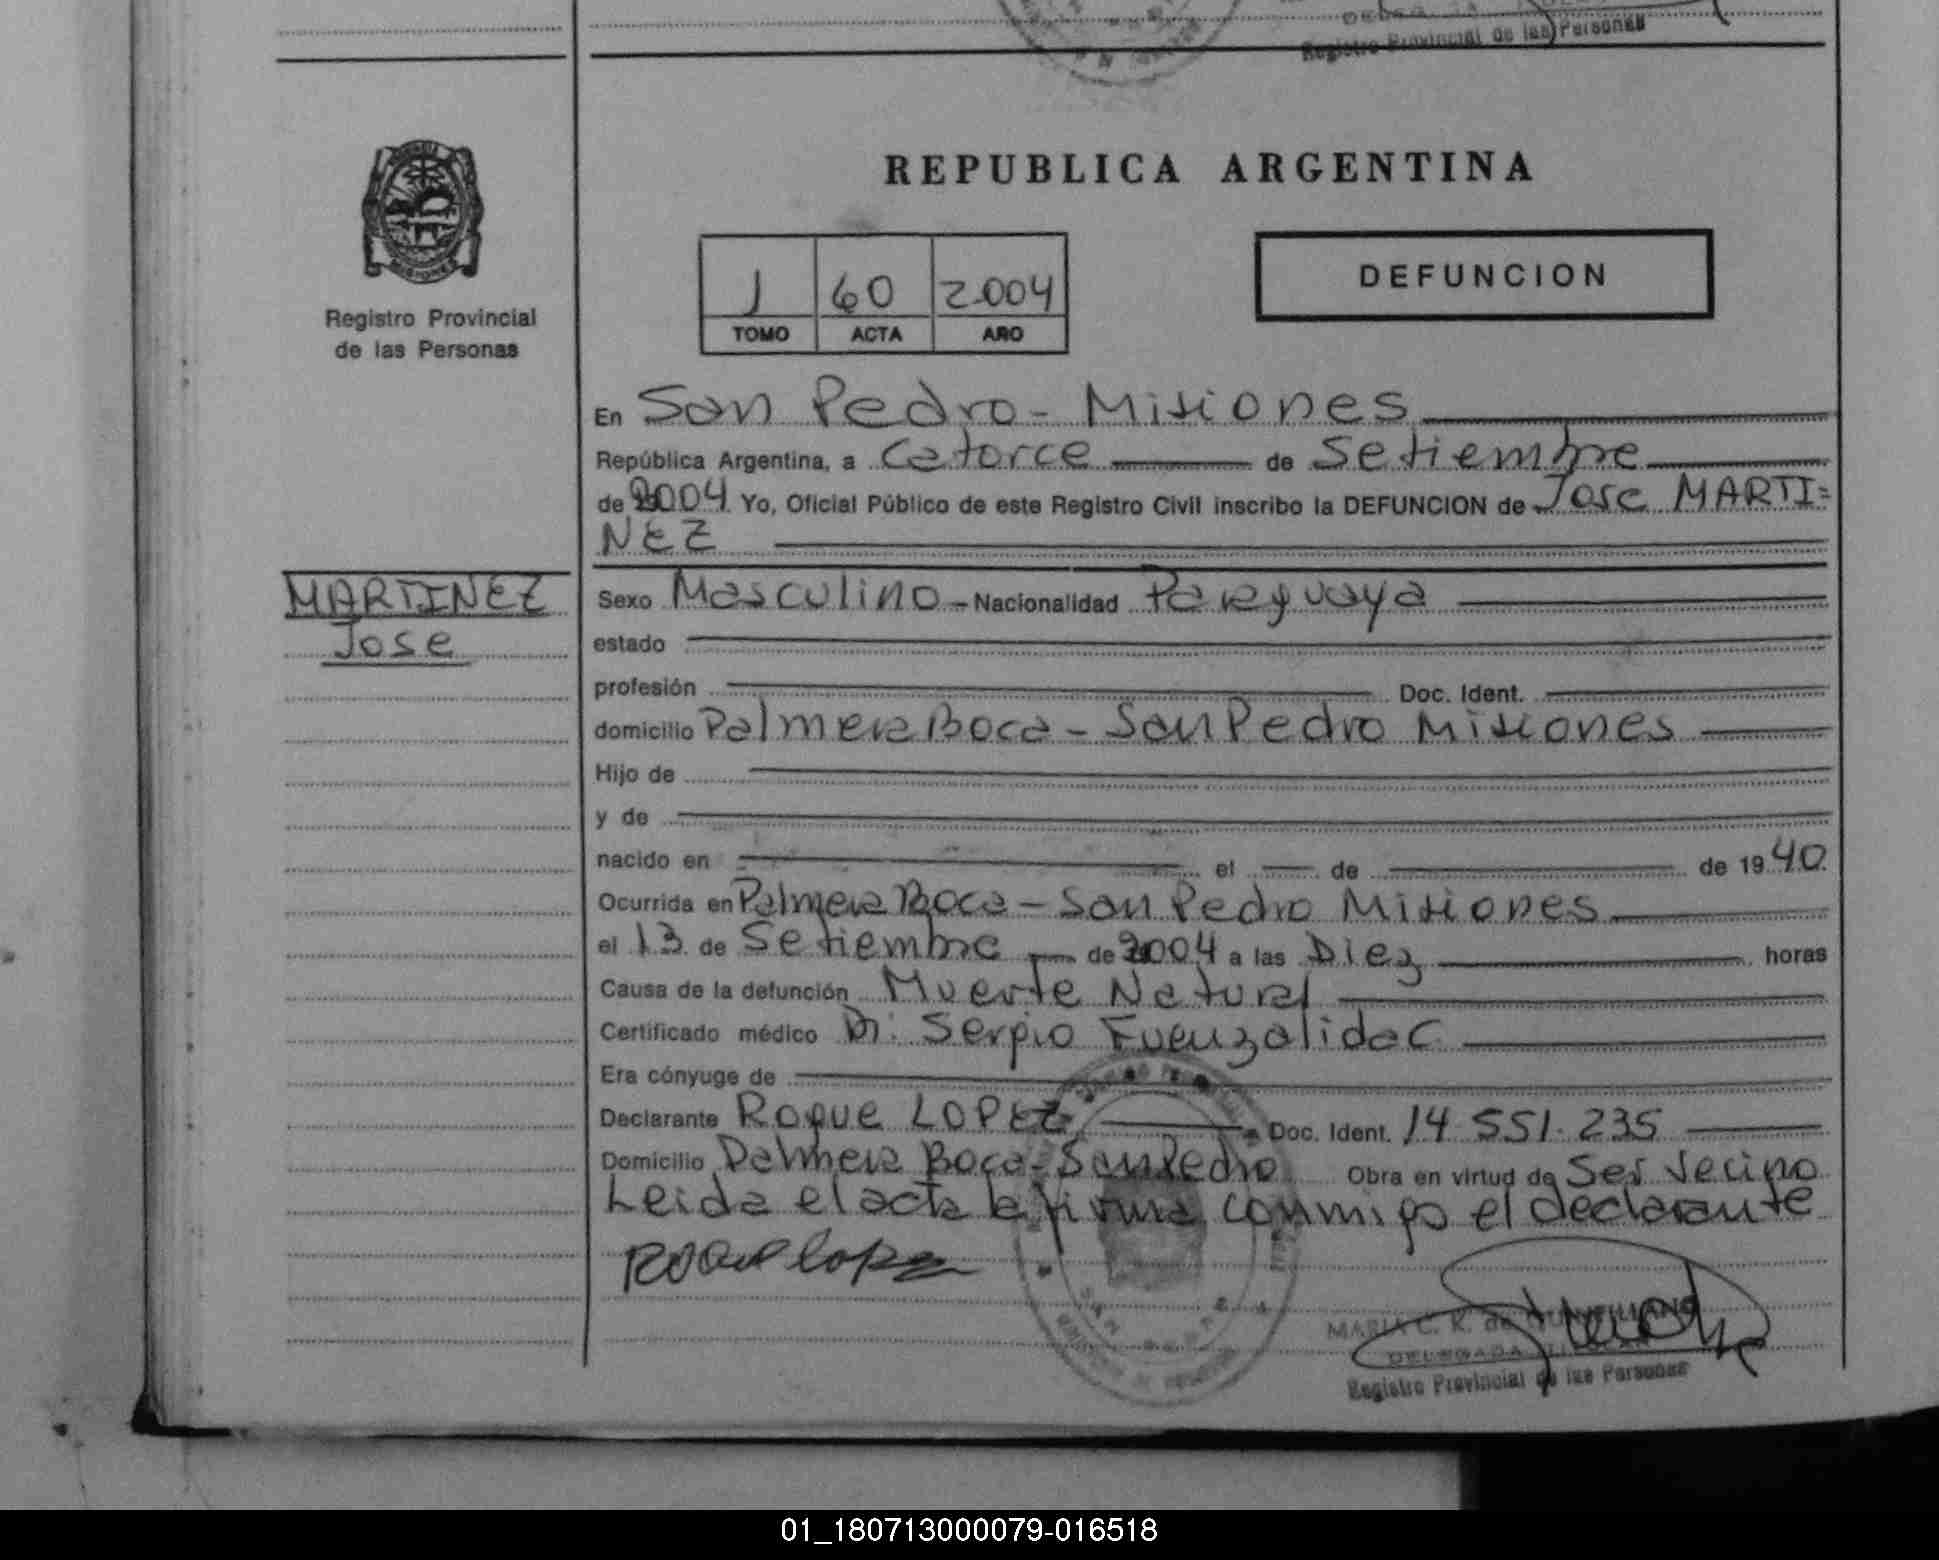 Registro Provincial de las Personas
REPUBLICA ARGENTINA
MISIONES
Registro Provincial
de las Personas
J 60 2004
TOMO ACTA AÑO
DEFUNCION
En San Pedro - Misiones
República Argentina, a Catorce de Setiembre
de 2004 Yo, Oficial Público de este Registro Civil inscribo la DEFUNCION de Jose MARTI=
NEZ
MARTINEZ
Jose
Sexo Masculino - Nacionalidad Paraguaya
estado
profesión Doc. Ident.
domicilio Palmera Boca - San Pedro Misiones
Hijo de
y de
nacido en el de de 1940
Ocurrida en Palmera Boca - San Pedro Misiones
el 13 de Setiembre de 2004 a las Diez horas
Causa de la defunción Muerte Natural
Certificado médico Dr. Sergio Fuenzalida C
Era cónyuge de
Declarante Roque LOPEZ Doc. Ident. 14.551.235
Domicilio Palmera Boca - San Pedro Obra en virtud de Ser Vecino
Leida el acta la firma conmigo el declarante
Roque lopez
MARIA C. K. de
DELEGADA TITULAR
Registro Provincial de las Personas
01_180713000079-016518